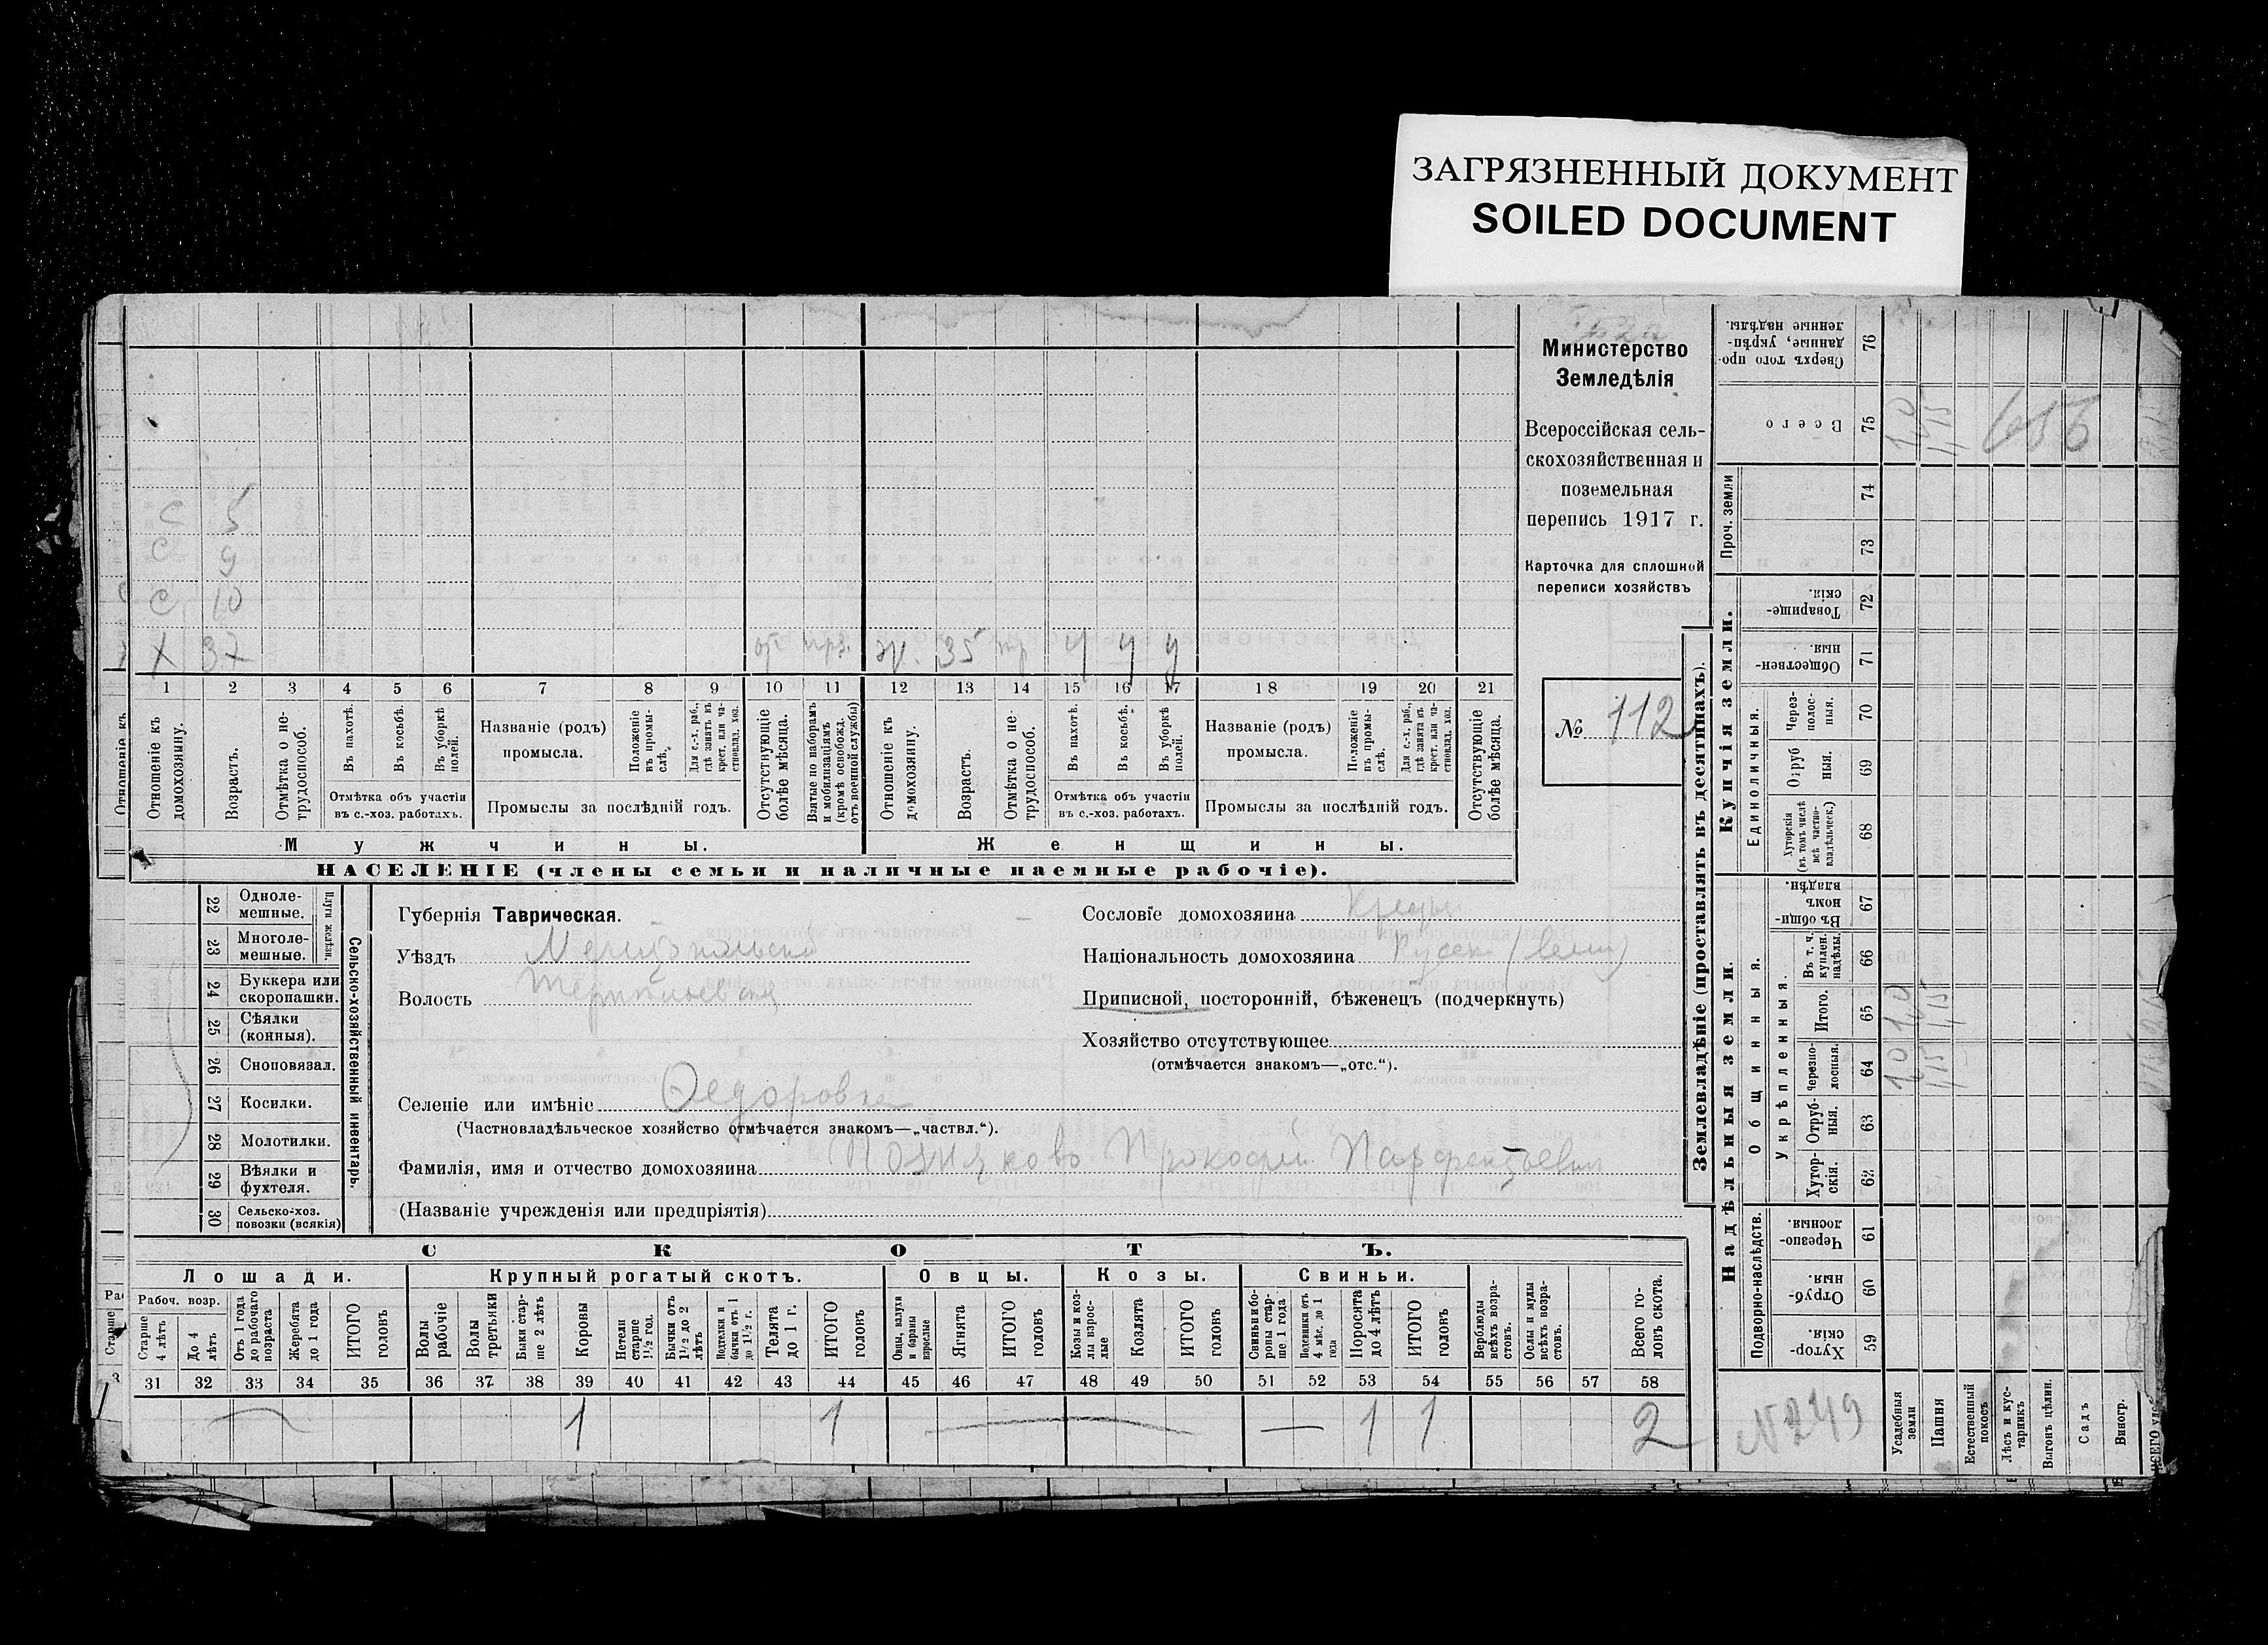 ЗАГРЯЗНЕННЫЙ ДОКУМЕНТ
SOILED DOCUMENT
Министерство
Земледѣлія
Всероссійская сель-
скохозяйственная и
поземельная
перепись 1917 г.
Карточка для сплошной
переписи хозяйствъ
№ 112
с 5
с 9
с 10
х 37 ж. 35 тр ч ч у
1 2 3 4 5 6 7 8 9 10 11 12 13 14 15 16 17 18 19 20 21
Отношеніе къ домохозяину.
Возрастъ.
Отмѣтка о не-трудоспособ.
Въ пахотѣ.
Въ косьбѣ.
Въ уборкѣ полей.
Отмѣтка объ участіи
въ с.-хоз. работахъ.
Названіе (родъ)
промысла.
Положеніе въ промы-слѣ.
Для с.-х. раб., гдѣ занятъ въ крест. или ча-стновлад. хоз.
Промыслы за послѣдній годъ.
Отсутствующіе болѣе мѣсяца.
Взятые по наборамъ и мобилизаціямъ (кромѣ освобожд. отъ военной службы)
Отношеніе къ домохозяину.
Возрастъ.
Отмѣтка о не-трудоспособ.
Въ пахотѣ.
Въ косьбѣ.
Въ уборкѣ полей.
Отмѣтка объ участіи
въ с.-хоз. работахъ.
Названіе (родъ)
промысла.
Положеніе въ промы-слѣ.
Для с.-х. раб., гдѣ занятъ въ крест. или ча-стновлад. хоз.
Промыслы за послѣдній годъ.
Отсутствующіе болѣе мѣсяца.
Мужчины. Женщины.
НАСЕЛЕНІЕ (члены семьи и наличные наемные рабочіе).
Сельско-хозяйственный инвентарь.
Плуги желѣзн.
22 Одноле-мешные.
23 Многоле-мешные.
24 Буккера или скоропашки.
25 Сѣялки (конныя).
26 Сноповязал.
27 Косилки.
28 Молотилки.
29 Вѣялки и фухтеля.
30 Сельско-хоз. повозки (всякія)
Губернія Таврическая.
Уѣздъ Мелитопольскій
Волость
Селеніе или имѣніе Федоровка
(Частновладѣльческое хозяйство отмѣчается знакомъ—„частвл.“).
Фамилія, имя и отчество домохозяина Позняковъ Прокофій Парфентьевич
(Названіе учрежденія или предпріятія)
Сословіе домохозяина
Національность домохозяина
Приписной, посторонній, бѣженецъ (подчеркнуть)
Хозяйство отсутствующее
(отмѣчается знакомъ—„отс.“).
СКОТЪ.
Лошади. Крупный рогатый скотъ. Овцы. Козы. Свиньи.
Рабоч. возр.
Старше 4 лѣтъ
До 4 лѣтъ
Отъ 1 года до рабочаго возраста
Жеребята до 1 года
ИТОГО головъ
Волы рабочіе
Волы третьяки
Быки стар-ше 2 лѣтъ
Коровы
Нетели старше 1½ год.
Бычки отъ 1½ до 2 лѣтъ
Подтелки и бычки отъ 1 до 1½ г.
Телята до 1 г.
ИТОГО головъ
Овцы, валухи и бараны взрослые
Ягнята
ИТОГО головъ
Козы и коз-лы взрос-лые
Козлята
ИТОГО головъ
Свиньи и бо-ровы стар-ше 1 года
Подсвинки отъ 4 мѣс. до 1 года
Поросята до 4 лѣтъ
ИТОГО головъ
Верблюды всѣхъ возра-стовъ.
Ослы и мулы всѣхъ возра-стовъ.
Всего го-ловъ скота.
31 32 33 34 35 36 37 38 39 40 41 42 43 44 45 46 47 48 49 50 51 52 53 54 55 56 57 58
1 1 — — 1 1 2
Землевладѣніе (проставлять въ десятинахъ).
Сверхъ того про-данные, укрѣп-ленные надѣлы. 76
Всего 75
Проч. земли 74 73
Купчія земли.
Товарище-скія. 72
Обществен-ныя. 71
Единоличныя.
Через-полос-ныя. 70
Отруб-ныя. 69
Хуторскія (въ томъ числѣ всѣ частно-владѣльческ.) 68
Надѣльныя земли.
Общинныя.
Въ общин-номъ владѣн. 67
Укрѣпленныя.
Въ т. ч. куплен. надѣлы. 66
Итого. 65
Черезпо-лосныя. 64
Отруб-ныя. 63
Хутор-скія. 62
Подворно-наслѣдств.
Черезпо-лосныя 61
Отруб-ныя 60
Хутор-скія 59
N249
Усадебныя земли
Пашня
Естественный покосъ
Лѣсъ и кус-тарникъ
Выгонъ цѣлин.
Садъ
Виногр.